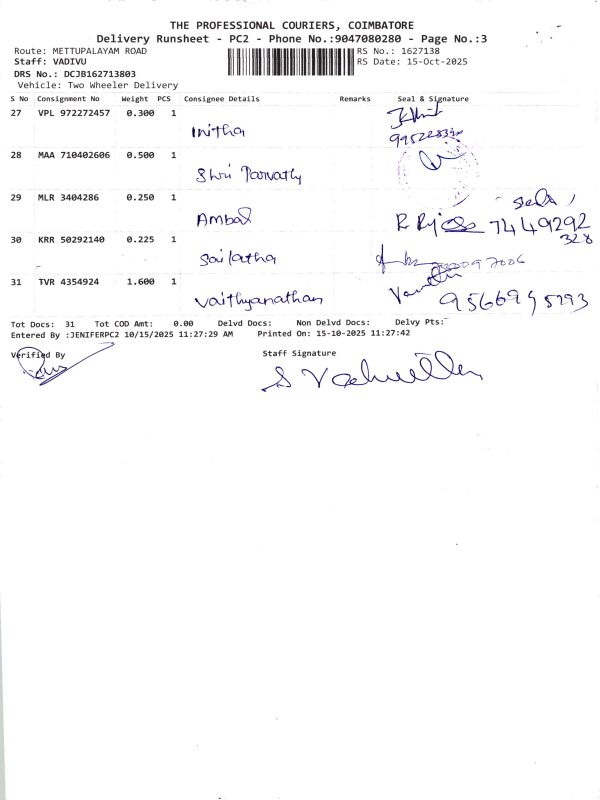 THE PROFESSIONAL COURIERS, COIMBATORE
Delivery Runsheet - PC2 - Phone No.:9047080280 - Page No.:3
Route: METTUPALAYAM ROAD RS No.: 1627138
Staff: VADIVU RS Date: 15-Oct-2025
DRS No.: DCJB162713803
Vehicle: Two Wheeler Delivery
S No Consignment No Weight PCS Consignee Details Remarks Seal & Signature
27 VPL 972272457 0.300 1
Initha
28 MAA 710402606 0.500 1
Shri Parvathy
29 MLR 3404286 0.250 1
Ambal
7449292
328
30 KRR 50292140 0.225 1
Sailatha
31 TVR 4354924 1.600 1
Vaithyanathan
Tot Docs: 31 Tot COD Amt: 0.00 Delvd Docs: Non Delvd Docs: Delvy Pts:
Entered By :JENIFERPC2 10/15/2025 11:27:29 AM Printed On: 15-10-2025 11:27:42
Verified By Staff Signature